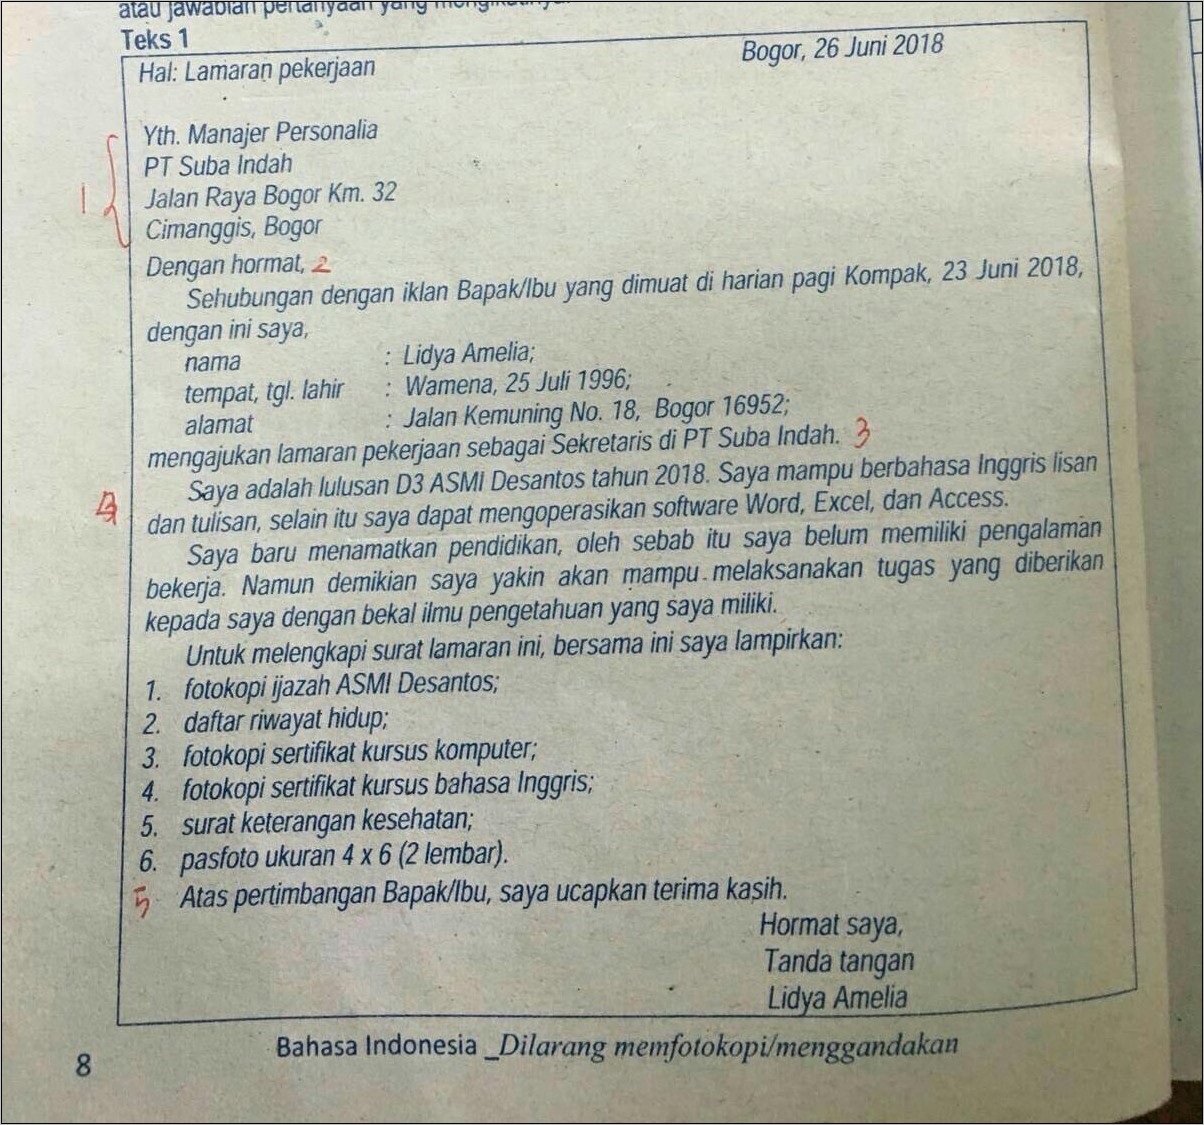 atau jawablah pertanyaan yang
Teks 1
Hal: Lamaran pekerjaan Bogor, 26 Juni 2018
Yth. Manajer Personalia
PT Suba Indah
1
Jalan Raya Bogor Km. 32
Cimanggis, Bogor
Dengan hormat, 2
Sehubungan dengan iklan Bapak/Ibu yang dimuat di harian pagi Kompak, 23 Juni 2018,
dengan ini saya,
nama : Lidya Amelia;
tempat, tgl. lahir : Wamena, 25 Juli 1996;
alamat : Jalan Kemuning No. 18, Bogor 16952;
mengajukan lamaran pekerjaan sebagai Sekretaris di PT Suba Indah. 3
Saya adalah lulusan D3 ASMI Desantos tahun 2018. Saya mampu berbahasa Inggris lisan
dan tulisan, selain itu saya dapat mengoperasikan software Word, Excel, dan Access.
Saya baru menamatkan pendidikan, oleh sebab itu saya belum memiliki pengalaman
bekerja. Namun demikian saya yakin akan mampu melaksanakan tugas yang diberikan
kepada saya dengan bekal ilmu pengetahuan yang saya miliki.
Untuk melengkapi surat lamaran ini, bersama ini saya lampirkan:
1. fotokopi ijazah ASMI Desantos;
2. daftar riwayat hidup;
3. fotokopi sertifikat kursus komputer;
4. fotokopi sertifikat kursus bahasa Inggris;
5. surat keterangan kesehatan;
6. pasfoto ukuran 4 x 6 (2 lembar).
5 Atas pertimbangan Bapak/Ibu, saya ucapkan terima kasih.
Hormat saya,
Tanda tangan
Lidya Amelia
Bahasa Indonesia _Dilarang memfotokopi/menggandakan
8